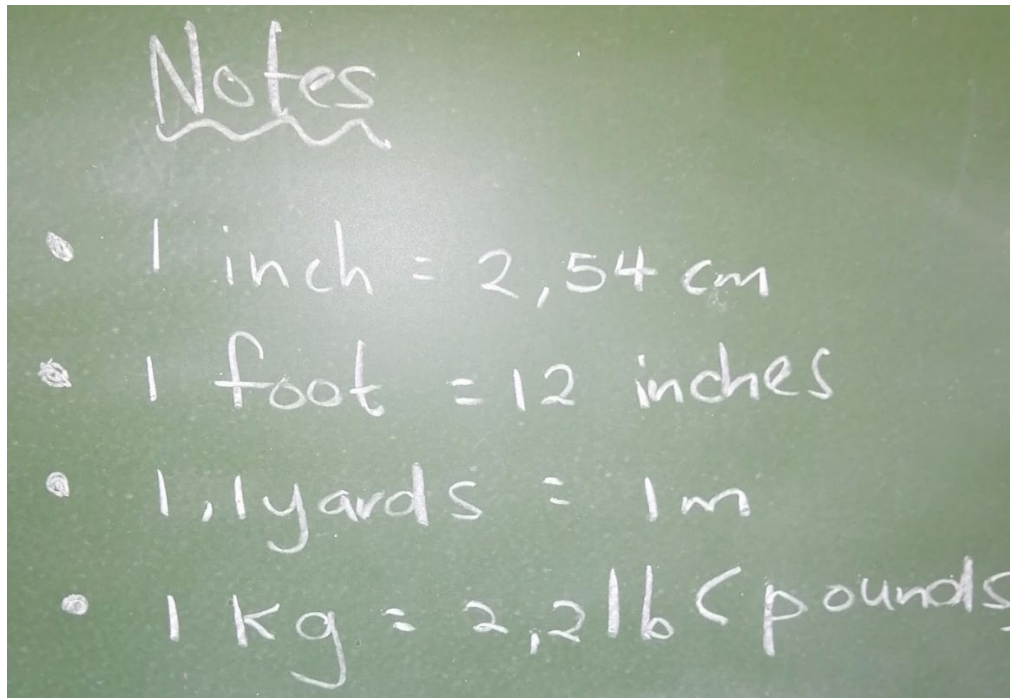 Notes
• 1 inch = 2,54 cm
• 1 foot = 12 inches
• 1,1 yards = 1 m
• 1 kg = 2,2 lb (pounds